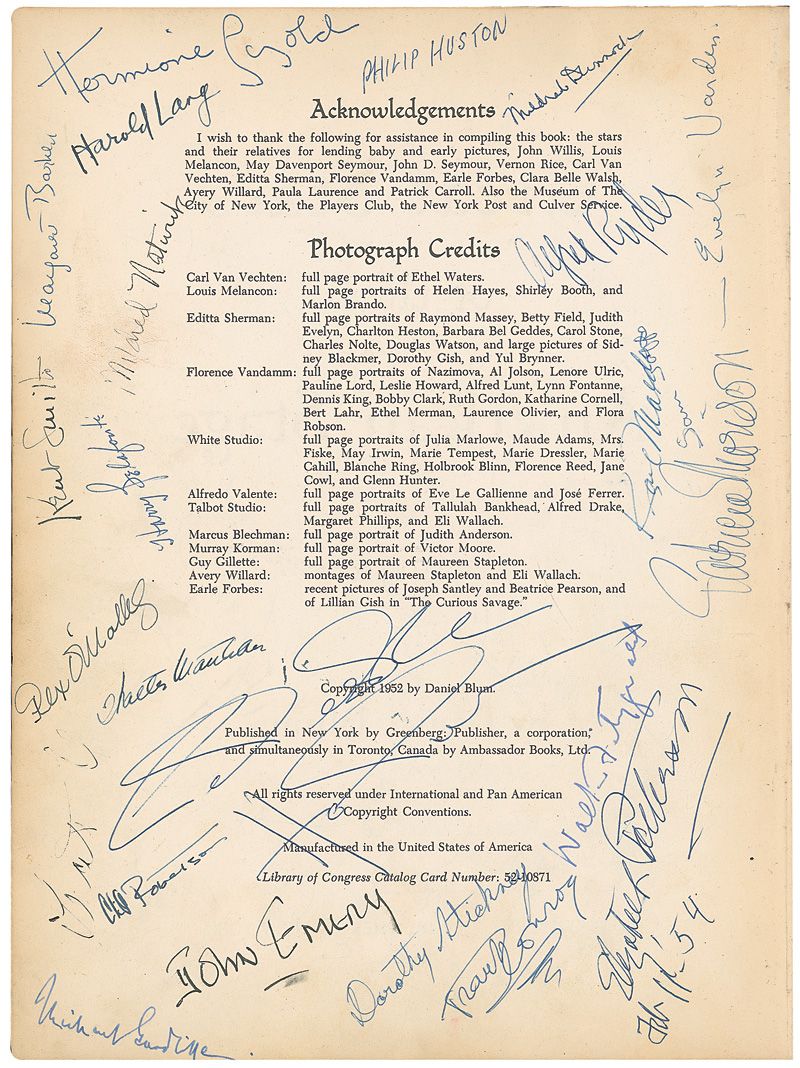 Hermione Gingold
PHILIP HUSTON
Mildred Dunnock
Harold Lang
Acknowledgements
I wish to thank the following for assistance in compiling this book: the stars
and their relatives for lending baby and early pictures, John Willis, Louis
Melancon, May Davenport Seymour, John D. Seymour, Vernon Rice, Carl Van
Vechten, Editta Sherman, Florence Vandamm, Earle Forbes, Clara Belle Walsh,
Avery Willard, Paula Laurence and Patrick Carroll. Also the Museum of The
City of New York, the Players Club, the New York Post and Culver Service.
Evelyn Varden
Margaret
Mildred Natwick
Alfred Ryder
Photograph Credits
Carl Van Vechten: full page portrait of Ethel Waters.
Louis Melancon: full page portraits of Helen Hayes, Shirley Booth, and
Marlon Brando.
Editta Sherman: full page portraits of Raymond Massey, Betty Field, Judith
Evelyn, Charlton Heston, Barbara Bel Geddes, Carol Stone,
Charles Nolte, Douglas Watson, and large pictures of Sid-
ney Blackmer, Dorothy Gish, and Yul Brynner.
Florence Vandamm: full page portraits of Nazimova, Al Jolson, Lenore Ulric,
Pauline Lord, Leslie Howard, Alfred Lunt, Lynn Fontanne,
Dennis King, Bobby Clark, Ruth Gordon, Katharine Cornell,
Bert Lahr, Ethel Merman, Laurence Olivier, and Flora
Robson.
White Studio: full page portraits of Julia Marlowe, Maude Adams, Mrs.
Fiske, May Irwin, Marie Tempest, Marie Dressler, Marie
Cahill, Blanche Ring, Holbrook Blinn, Florence Reed, Jane
Cowl, and Glenn Hunter.
Alfredo Valente: full page portraits of Eve Le Gallienne and José Ferrer.
Talbot Studio: full page portraits of Tallulah Bankhead, Alfred Drake,
Margaret Phillips, and Eli Wallach.
Marcus Blechman: full page portrait of Judith Anderson.
Murray Korman: full page portrait of Victor Moore.
Guy Gillette: full page portrait of Maureen Stapleton.
Avery Willard: montages of Maureen Stapleton and Eli Wallach.
Earle Forbes: recent pictures of Joseph Santley and Beatrice Pearson, and
of Lillian Gish in "The Curious Savage."
Kent Smith
Rex O'Malley
Copyright 1952 by Daniel Blum.
Published in New York by Greenberg: Publisher, a corporation,
and simultaneously in Toronto, Canada by Ambassador Books, Ltd.
All rights reserved under International and Pan American
Copyright Conventions.
Manufactured in the United States of America
Library of Congress Catalog Card Number: 52-10871
Walter Fitzgerald
Cliff Robertson
JOHN EMERY
Dorothy Stickney
Frank Conroy
Elizabeth Patterson
Feb 11-'54
Michael